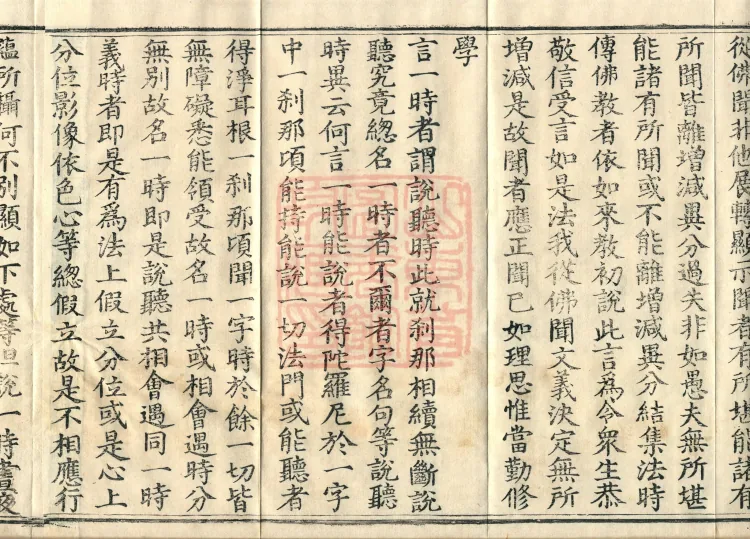 從佛聞非他展轉顯示聞者有所堪能諸有
所聞皆離增減異分過失非如愚夫無所堪
能諸有所聞或不能離增減異分結集法時
傳佛教者依如來教初說此言為令眾生恭
敬信受言如是法我從佛聞文義決定無所
增減是故聞者應正聞已如理思惟當勤修
學
言一時者謂說聽時此就剎那相續無斷說
聽究竟緫名一時者不爾者字名句等說聽
時異云何言一時能說者得陀羅尼於一字
中一剎那頃能持能說一切法門或能聽者
得淨耳根一剎那頃聞一字時於餘一切皆
無障礙悉能領受故名一時或相會遇時分
無別故名一時即是說聽共相會遇同一時
義時者即是有為法上假立分位或是心上
分位影像依色心等總假立故是不相應行
蘊所攝何不別顯如下處等但說一時晝夜